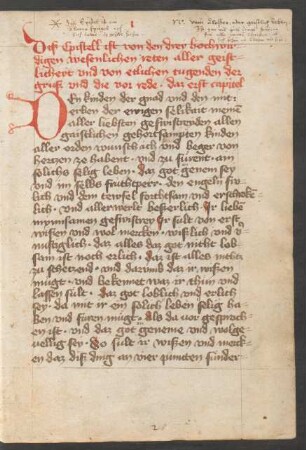 1
Disz Epistell ist von den drey hochwir
digen wesenlichen reten aller geist
lichere und von etlichen tugenden der
grust und die vor rede · daz erst capitel
Den kinden der gnad und den mit
erben der ewigen selikait meinē
aller liebsten gefrundenden allen
gaistlichen gehorsampten kinden
aller orden wunsch ich und beger von
hertzen ze habent · und zu fürent · am
selichs selig leben · daz got genem sey
und im selbs fruchtper · den engeln frö
lich und dem tewfel forchtsam und erschröck=
lich · und allerwerlt besserlich · Ir liebe
mynsamen ir sült von erst
wissen und wol mercken · wisslich und v̄
nüfftglich · daz alles daz got nicht lob
sam ist noch erlich · daz ist alles nichtz
zu scheczend · und darumb daz ir wissen
mügt · und bekennet waz ir thun und
lassen sült · daz got löblich und erlich
sey · da mit ir ein sölich leben selig ha
ben und füren mügt · als da vor gesproch
en ist · und daz got geneme und wolge
vellig sey · So sült ir wissen und merck
en daz diß ding an vier puncten sunder
2